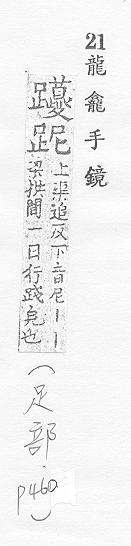 21龍龕手鏡
跜
上渠追反下音尼丨丨
梁拱間一曰行𨂂皃也
(足部
p460)